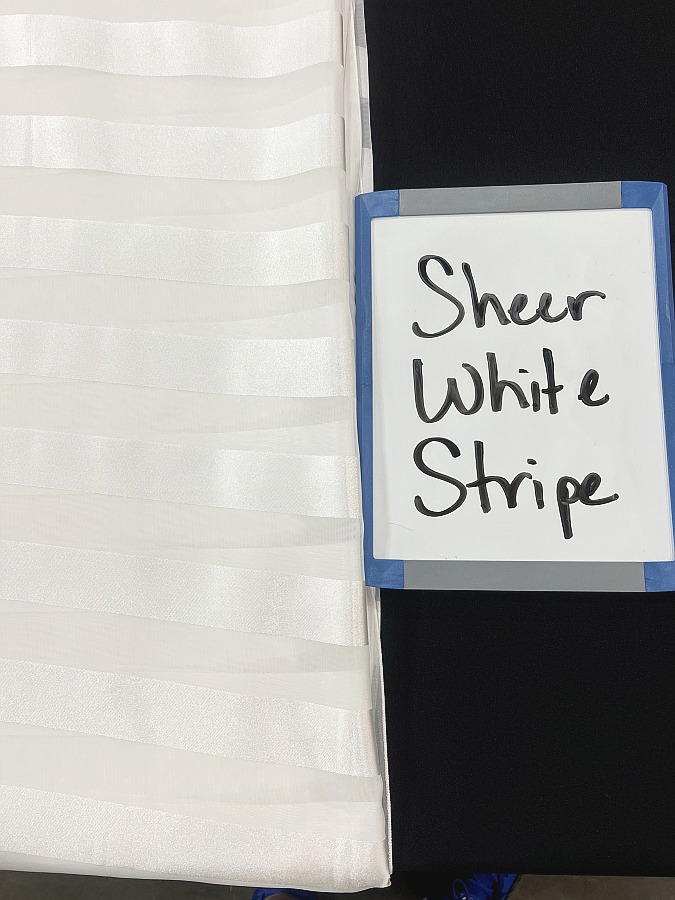 Sheer
White
Stripe